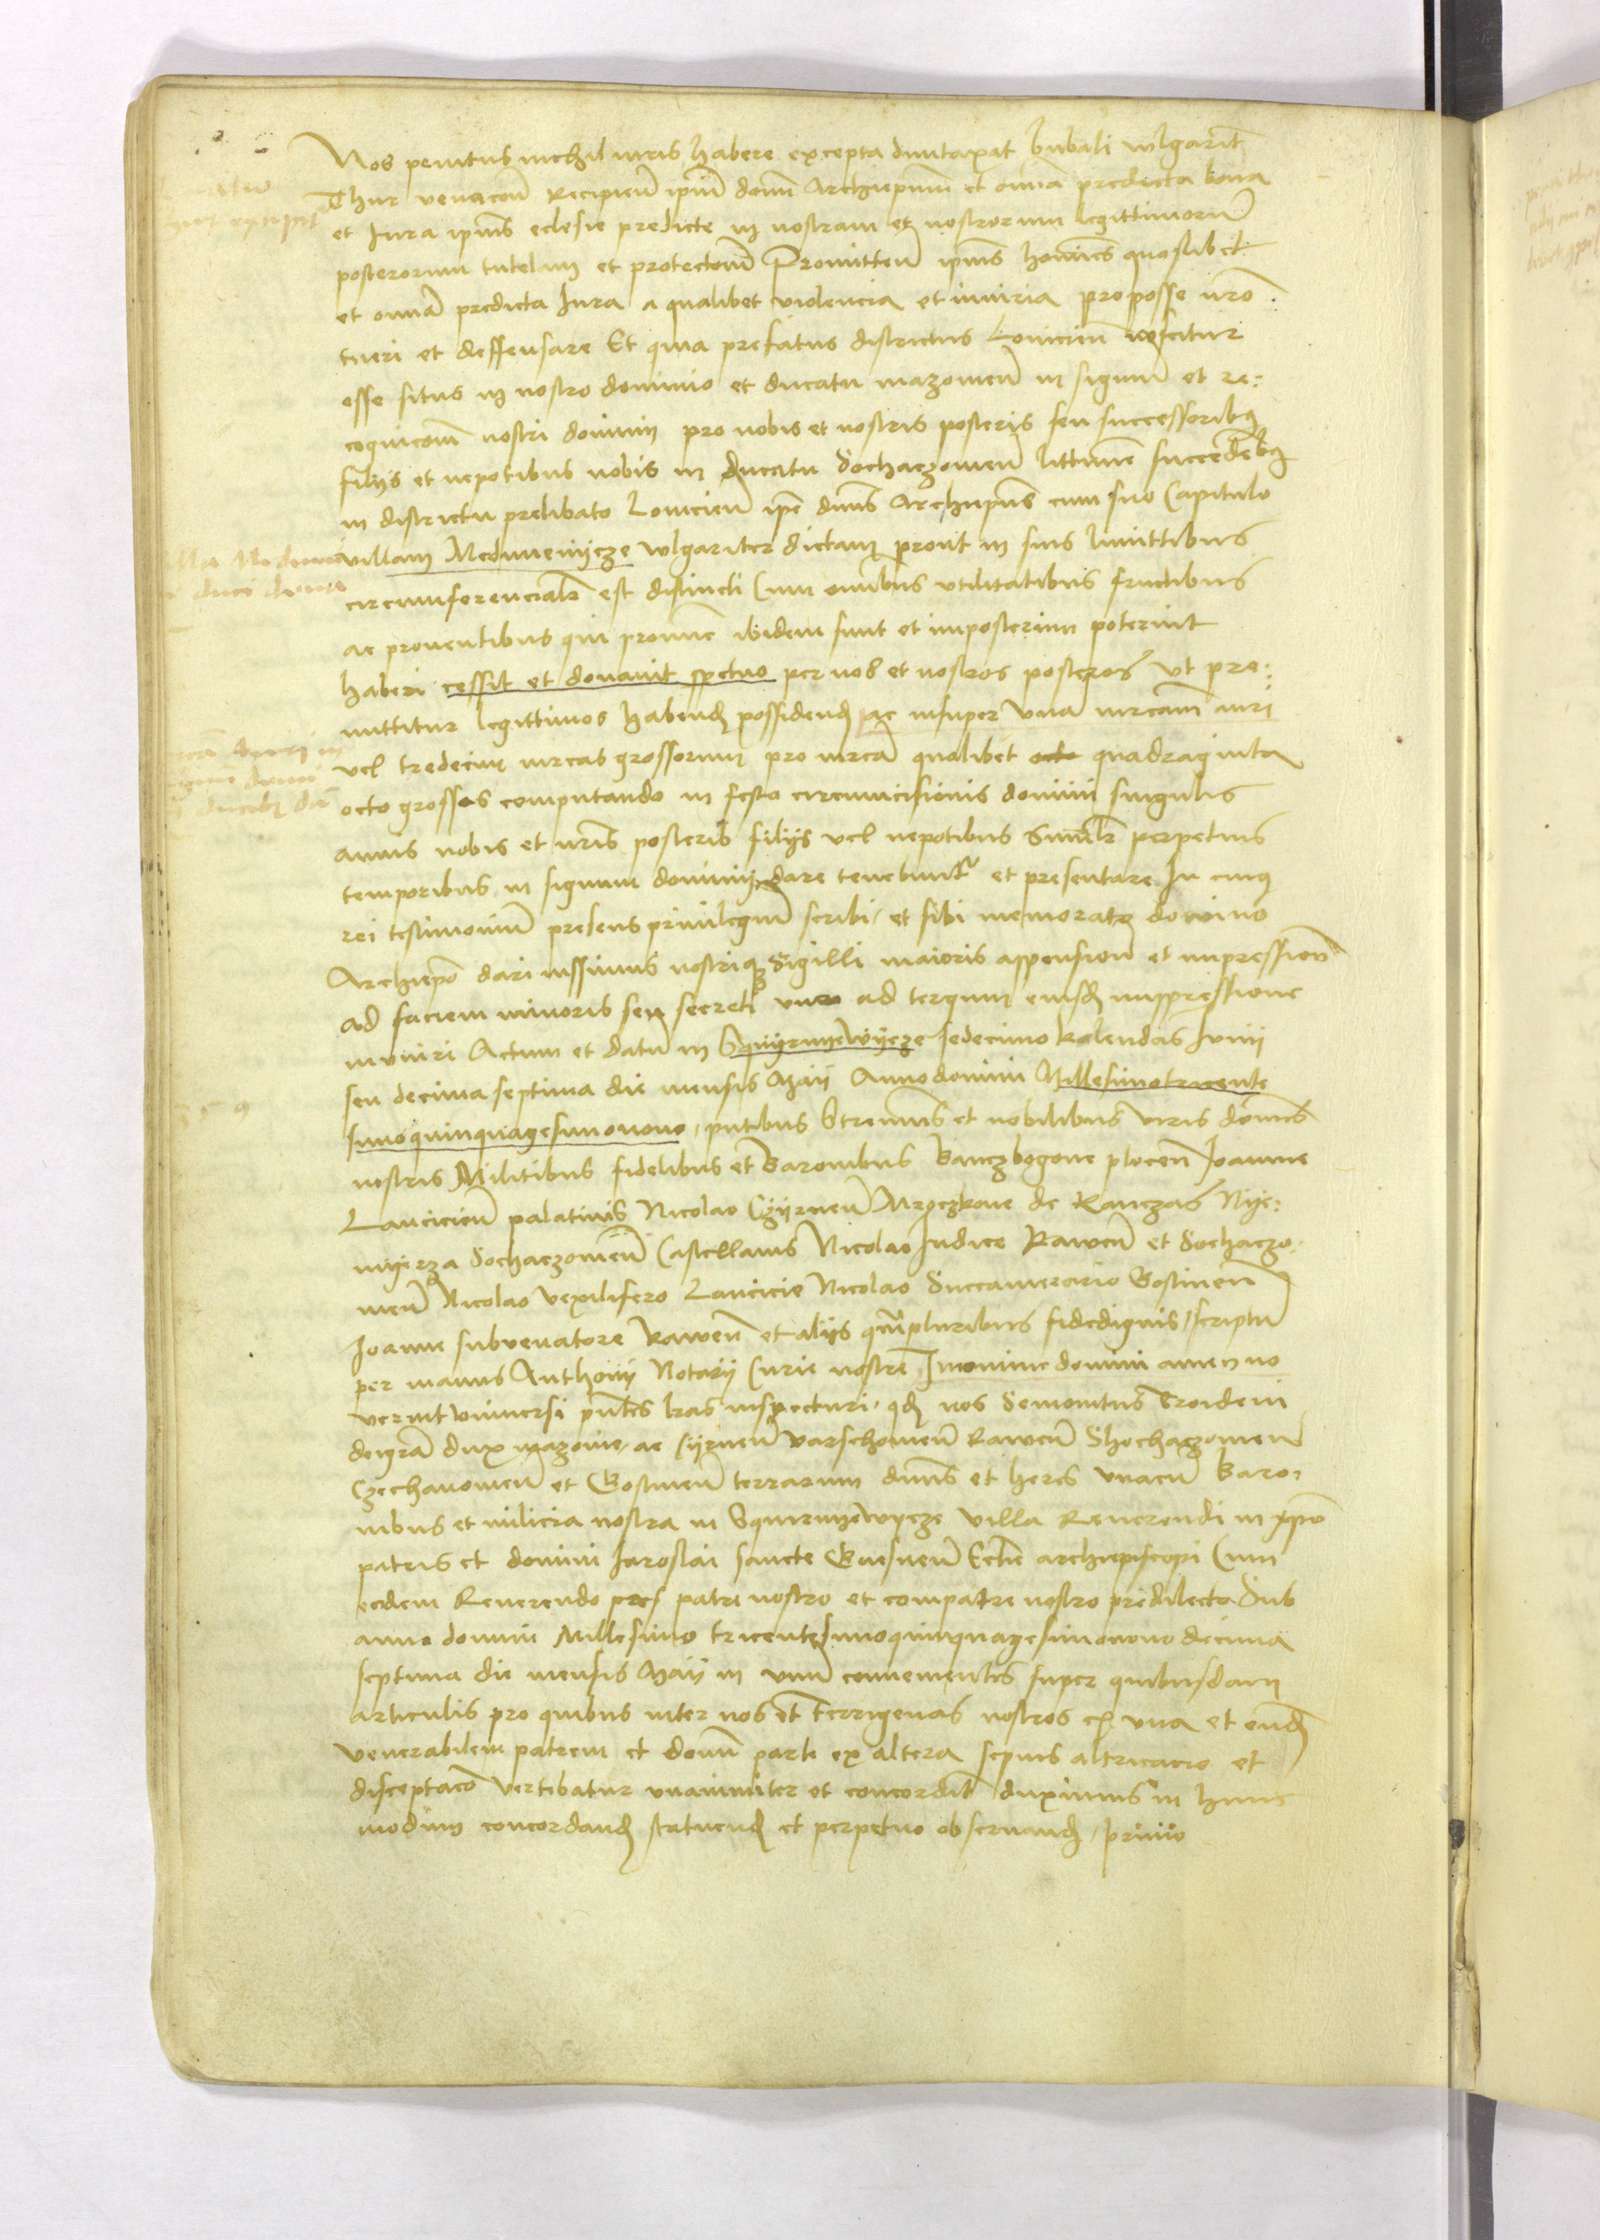 Nos penitus nichil iuris habere excepta duntaxat bubali wlgarit͂
Thur venacoñ Recipieñ ip̃m̃ dom̃ Archiep̃um et om̃ia predicta bona
et Iura ip̃ius eclesie predicte in nostram et nostrorum legittimorũ
posterorum tutelam et protectoẽm Promitteñ ip̃ius homines quoslibet
et om̃ia predicta Iura a qualibet violencia et iniuria pro posse nr̃o
tueri et deffensare Et quia prefatus districtus Louicieñ noscitur
esse situs in nostro dominio et ducatu mazouieñ in signum et re:
cognicoẽm nostri dominii pro nobis et nostris posteris seu successoribꝫ
filijs et nepotibus nobis in ducatu Sochaczouieñ littime succedẽbꝫ
in districtu prelibato Louicieñ ip̃e dñus Archiep̃us cum suo Capitulo
villam Medunieuijcze wlgariter dictam prout in suis limittibus
circumferencialr̃ est distincti Cum om̃ibus vtilitatibus fructibus
ac prouentibus qui pronũc ibidem sunt et imposterum poterint
haberi cessit et donauit ꝑpetuo per nos et nostros posteros vt pre:
mittitur legittimos habend possidend ac insuper vna mrcam auri
vel tredecim mrcas grossorum pro mrca qualibet octo quadraginta
octo grossos computando in festo circumcisionis domini singulis
annis nobis et nr̃is posteris filijs vel nepotibus similr̃ perpetuis
temporibus in signum dominij dare tenebunt͂ et presentare In cuiꝫ
rei testimoniũ presens priuilegiũ scribi et sibi memorato domino
Archiep̃o dari iussimus nostriqꝫ Sigilli maioris appensioñ et impressioñ
ad faciem minoris seu secreti vero ad tergum eiusd̃ impressione
muniri Actum et datũ in Squijrnijewijcze sedecimo kalendas Iunij
seu decima septima die mensis Maij Anno domini Millesimotricente
simoquinquagesimonono, pñtibus Strenuis et nobilibus viris dom̃is
nostris Militibus fidelibus et Baronibus Banczbogone ploceñ Ioanne
Lancicieñ palatinis Nicolao Czijrneñ Mroczkone de Ranczas Nije:
mijerza Sochaczouieñ Castellanis Nicolao Iudice Raweñ et Sochaczo:
uieñ Nicolao vexilifero Lancicie Nicolao Succamerario Gostineñ
Ioanne subvenatore Raweñ et alijs q̃mpluribus fidedignis, scriptũ
per manus Anthonij Notarij Curie nostre In nomine domini amen no
uerint vniuersi pñtes lr̃as inspecturi, qd̃ nos Semouitus Troideni
deigrã dux mazouie, ac Cijrneñ varschouieñ Raweñ Shochaczouieñ
Czechanouieñ et Gostineñ terrarum dñus et heres vnacũ Baro:
nibus et milicia nostra in Squirnijewycze villa Reuerendi in xp̃o
patris et domini Iaroslai sancte Gnesneñ Ecl̃ie archiepiscopi Cum
eodem Reuerendo patri nostro et compatre nostro predilecto Sub
anno domini Millesimo tricentesimoquinquagesimonono decima
septima die mensis Maij in vnũ conuenientes super quibusdam
articulis pro quibus inter nos et terrigenas nostros ex vna et eund̃
venerabilem patrem et domũ parti ex altera sepius altricacio et
disceptacõ vertibatur vnanimiter et concordit͂ duximus in hunc
modum concordand̃ statuend̃ et perpetuo obseruand̃, primo